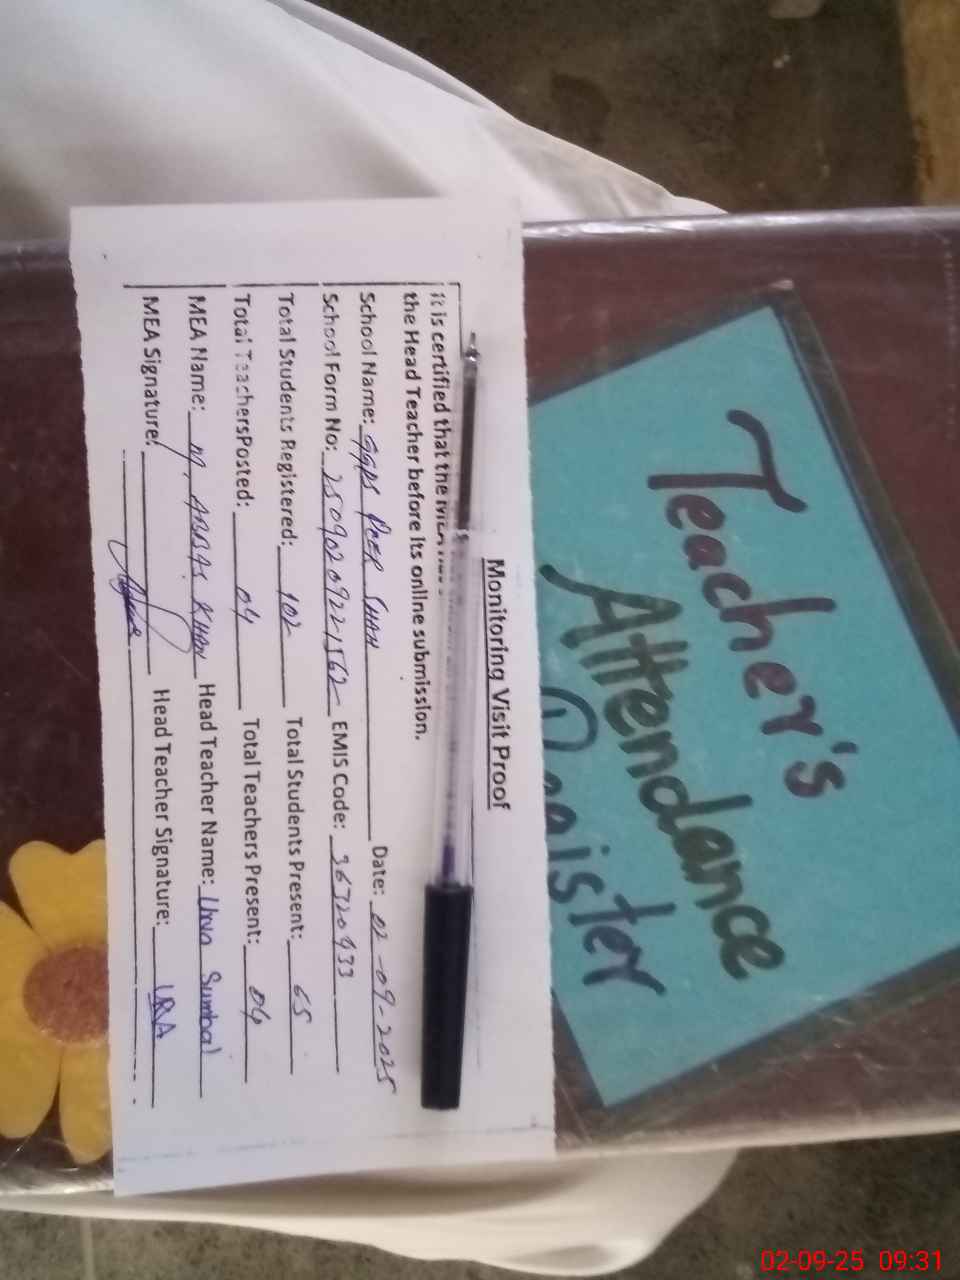 Teacher's
Attendance
Register
Monitoring Visit Proof
It is certified that the
the Head Teacher before its online submission.
School Name: GGPS PEER SHAH Date: 02-09-2025
School Form No: EMIS Code: 36720433
Total Students Registered: 102 Total Students Present: 65
Total TeachersPosted: 04 Total Teachers Present: 04
MEA Name: M. ABBAS KHAN Head Teacher Name: Urva Sumbal
MEA Signature: Head Teacher Signature:
02-09-25 09:31